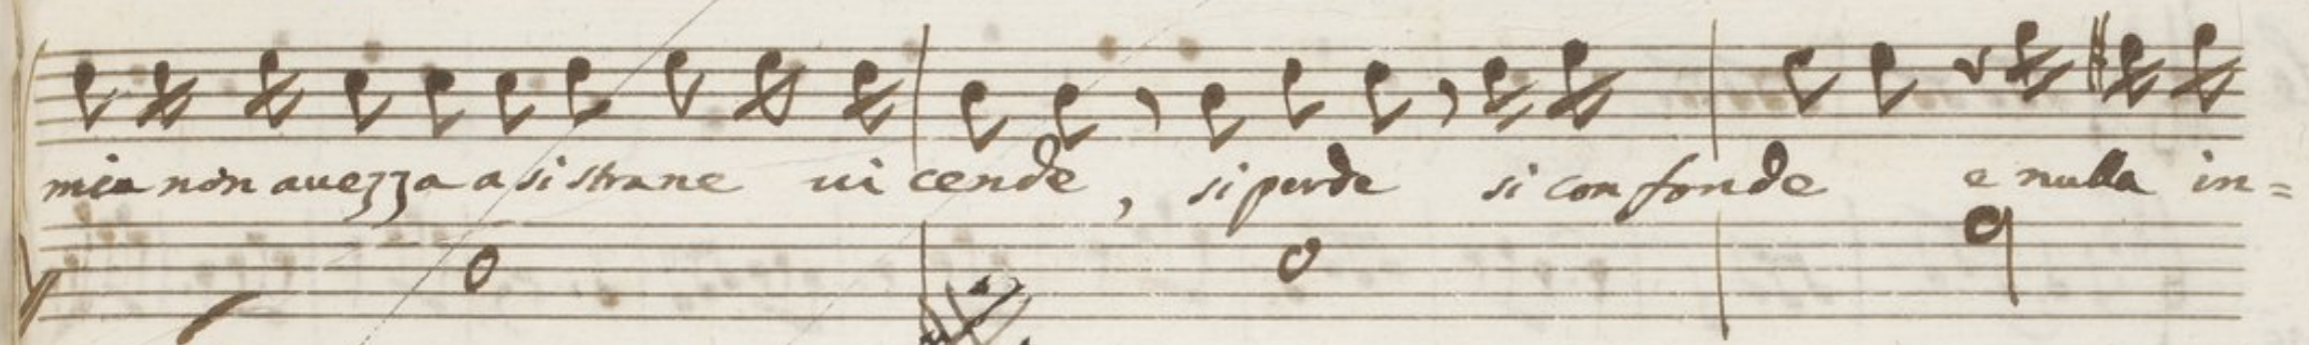 mia non auezza a si strane ui cende, si perde si confonde e nulla in=